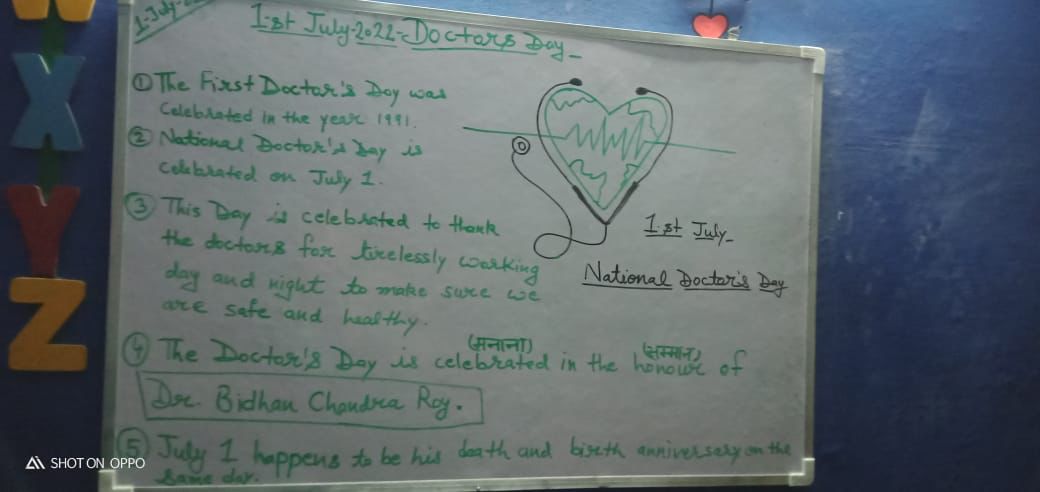 W
X
Y
Z
1-July-
1st July-2022-Doctors Day-
① The First Doctor's Day was
Celebrated in the year 1991.
② National Doctor's Day is
celebrated on July 1.
③ This Day is celebrated to thank
the doctors for tirelessly working
day and night to make sure we
are safe and healthy.
(मनाना) (सम्मान)
④ The Doctor's Day is celebrated in the honour of
Dr. Bidhan Chandra Roy.
⑤ July 1 happens to be his death and birth anniversary on the
same day.
1st July-
National Doctor's Day
SHOT ON OPPO